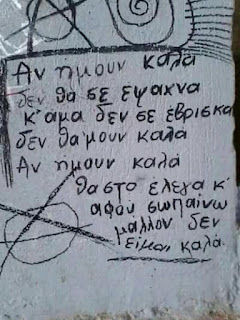 Αν ήμουν καλά
δεν θα σε έψαχνα
κ' άμα δεν σε έβρισκα
δεν θα 'μουν καλά
Αν ήμουν καλά
θα στο έλεγα κ'
αφού σωπαίνω
μάλλον δεν
είμαι καλά.